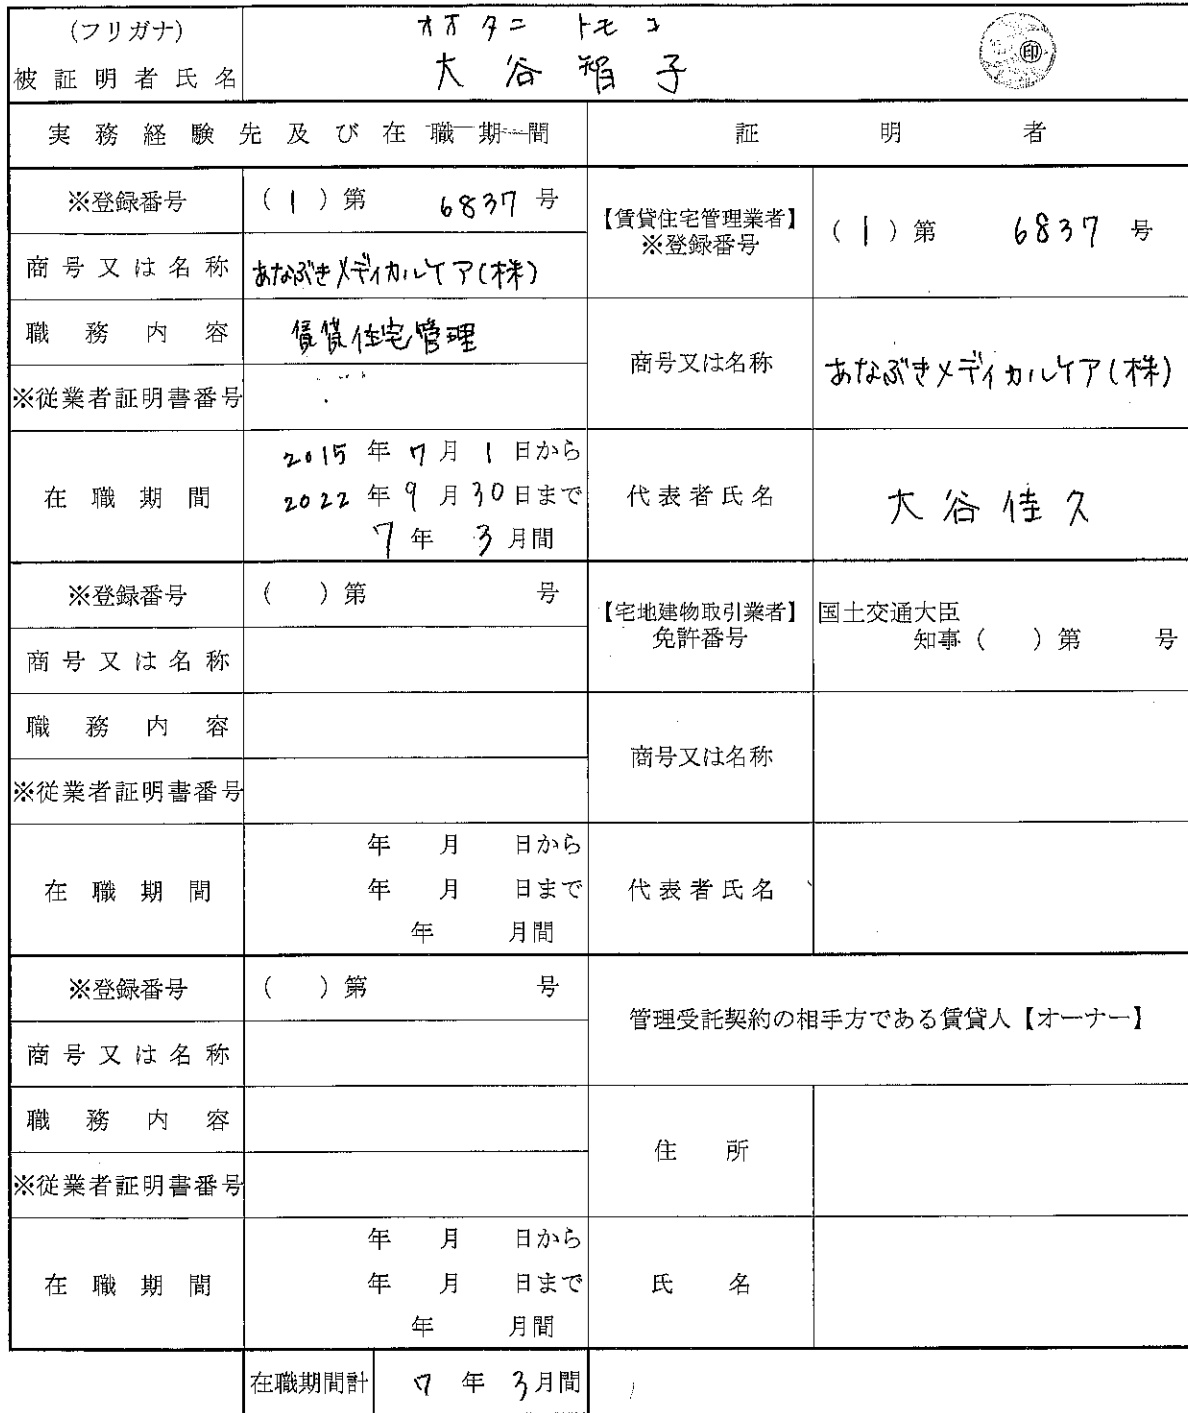 (フリガナ) オオタニ トモコ
被証明者氏名 大谷智子 ㊞
実務経験先及び在職期間 証明者
※登録番号 (1)第 6837 号 【賃貸住宅管理業者】 ※登録番号 (1)第 6837 号
商号又は名称 あなぶきメディカルケア(株)
職務内容 賃貸住宅管理 商号又は名称 あなぶきメディカルケア(株)
※従業者証明書番号
在職期間 2015年7月1日から
2022年9月30日まで 代表者氏名 大谷佳久
7年3月間
※登録番号 ( )第 号 【宅地建物取引業者】 免許番号 国土交通大臣
知事( )第 号
商号又は名称
職務内容 商号又は名称
※従業者証明書番号
在職期間 年 月 日から
年 月 日まで 代表者氏名
年 月間
※登録番号 ( )第 号 管理受託契約の相手方である賃貸人【オーナー】
商号又は名称
職務内容 住所
※従業者証明書番号
在職期間 年 月 日から
年 月 日まで 氏名
年 月間
在職期間計 7年3月間